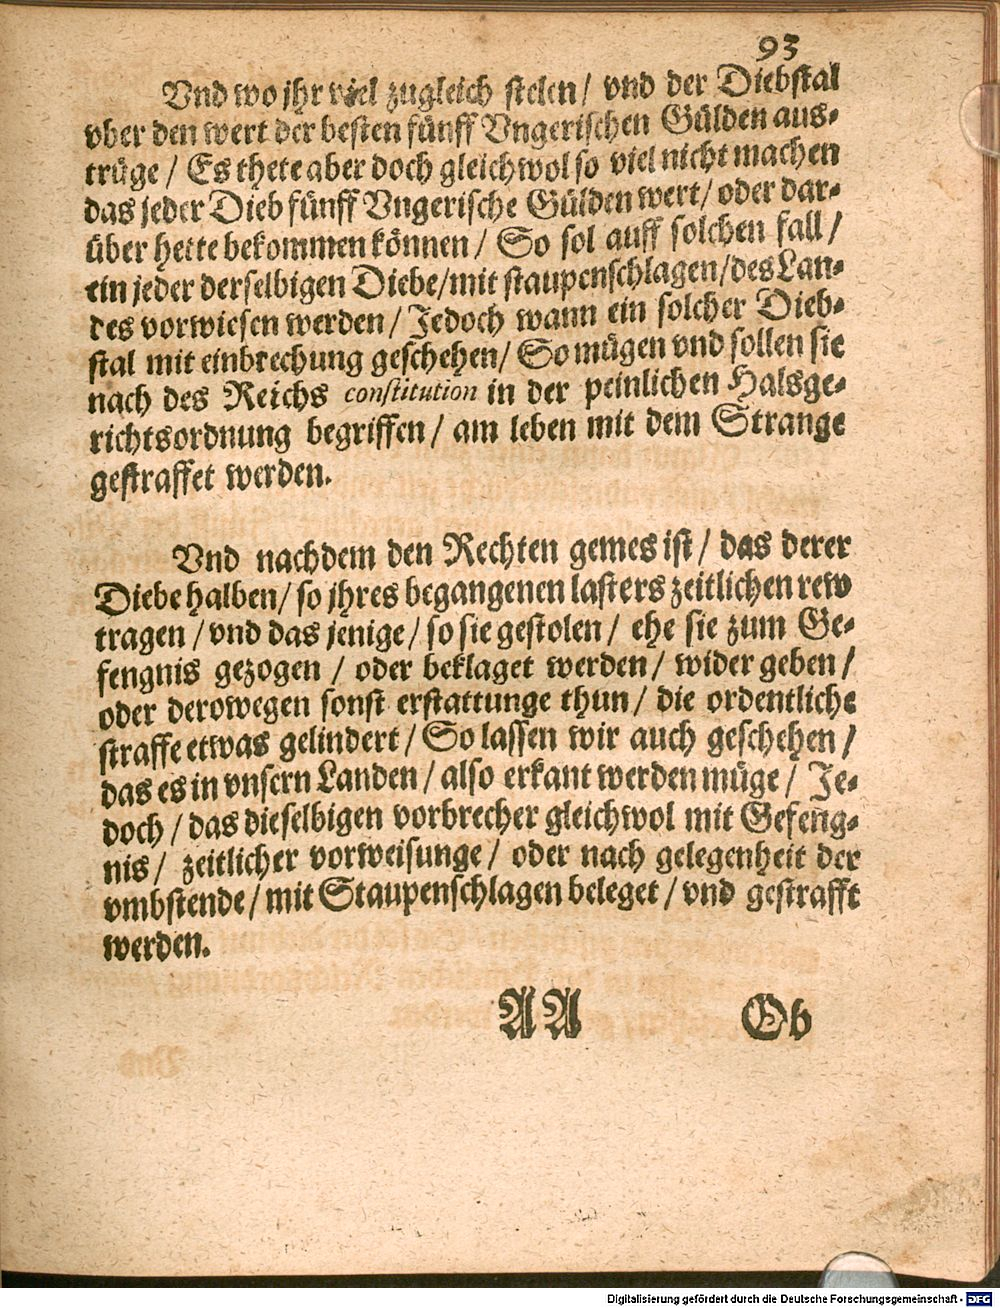 93
Vnd wo jhr viel zugleich stelen / vnd der Diebstal
vber den wert der besten fünff Vngerischen Gülden aus-
trüge / Es thete aber doch gleichwol so viel nicht machen
das jeder Dieb fünff Vngerische Gülden wert / oder dar-
über hette bekommen können / So sol auff solchen fall /
ein jeder derselbigen Diebe / mit staupenschlagen / des Lan-
des vorwiesen werden / Jedoch wann ein solcher Dieb-
stal mit einbrechung geschehen / So mügen vnd sollen sie
nach des Reichs constitution in der peinlichen Halsge-
richtsordnung begriffen / am leben mit dem Strange
gestraffet werden.
Vnd nachdem den Rechten gemes ist / das derer
Diebe halben / so jhres begangenen lasters zeitlichen rew
tragen / vnd das jenige / so sie gestolen / ehe sie zum Ge-
fengnis gezogen / oder beklaget werden / wider geben /
oder derowegen sonst erstattunge thun / die ordentliche
straffe etwas gelindert / So lassen wir auch geschehen /
das es in vnsern Landen / also erkant werden müge / Je-
doch / das dieselbigen vorbrecher gleichwol mit Gefeng-
nis / zeitlicher vorweisunge / oder nach gelegenheit der
vmbstende / mit Staupenschlagen beleget / vnd gestrafft
werden.
AA Ob
Digitalisierung gefördert durch die Deutsche Forschungsgemeinschaft - DFG